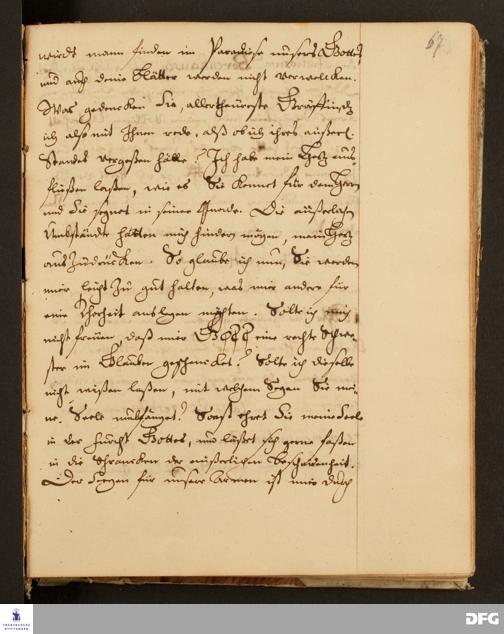 67
wirdt mann finden im Paradiese unsers Gottes,
und auch deine Blätter werden nicht verwelcken.
Was gedencken Sie, allertheureste Gräffin, daß
ich also mit Ihnen rede, alß ob ich ihres äuserl.
Standes vergeßen hätte? Ich habe mein Hertz auß-
fließen laßen, wie es Sie kennet für dem Herrn
und Sie segnet in seiner Gnade. Die äußerlichen
Umbstände hätten mich hindern mögen, mein Hertz
auszudrücken. So glaube ich nun, Sie werden
mir leicht zu gut halten, was mir andere für
eine Thorheit auslegen möchten. Solte ich mich
nicht freuen, daß mir Gott eine rechte Schwe-
ster im Glauben geschencket? Solte ich dieselbe
nicht wißen laßen, mit welchem Segen Sie mei-
ne Seele umbfänget? Sonst ehret Sie meine Seele
in der Furcht Gottes, und läßet sich gerne faßen
in die Schrancken der äußerlichen Bescheidenheit.
Der Segen für unsere Armen ist mir durch
FRANCKESCHE
STIFTUNGEN
DFG